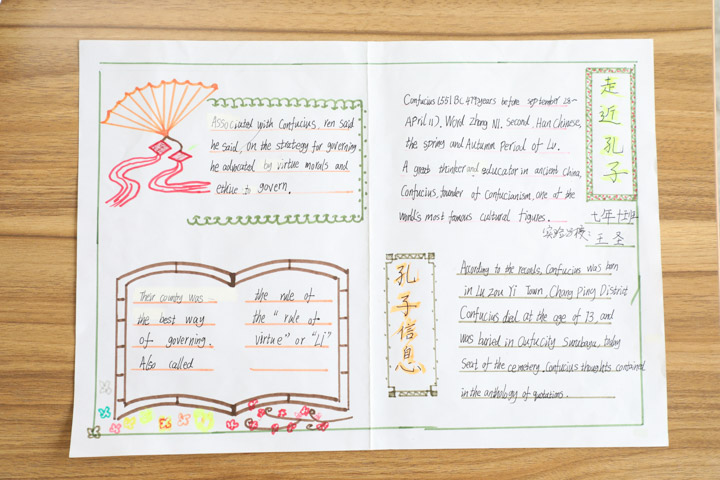 Associated with Confucius, Ren said
he said, on the strategy for governing,
he advocated by virtue morals and
ethic to govern.
Their country was
the best way
of governing.
Also called
the rule of
the "rule of
virtue" or "Li"
Confucius (551 BC 479 years before september 28~
APRil 11), Word Zhong NI, Second, Han Chinese,
the spring and Autumn Period of Lu.
A great thinker and educator in ancient china,
Confucius, founder of Confucianism, one of the
world's most famous cultural figures.
走近孔子
七年十班
实验分校:
王圣
孔子信息
According to the records, Confucius was born
in Lu zou Yi Town, Chang Ping District
Confucius died at the age of 73, and
was buried in Qufu City Surabaya, today
Seat of the cemetery. Confucius thoughts contained
in the anthology of quotations.